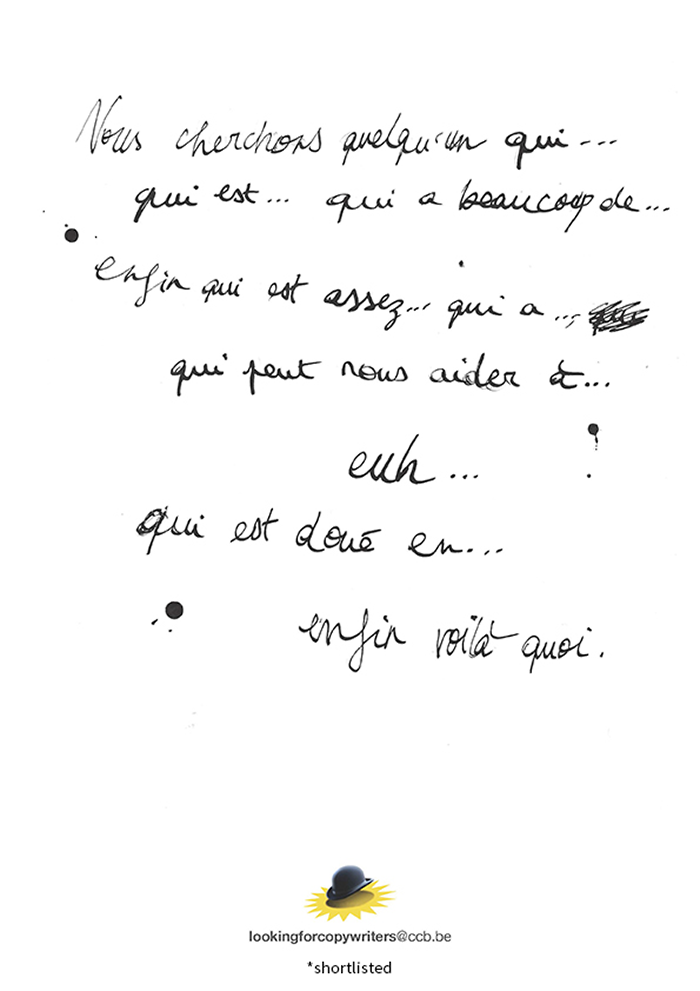 Nous cherchons quelqu'un qui...
qui est... qui a beaucoup de...
enfin qui est assez... qui a ...
qui peut nous aider à...
euh...
qui est doué en...
enfin voilà quoi.
lookingforcopywriters@ccb.be
*shortlisted